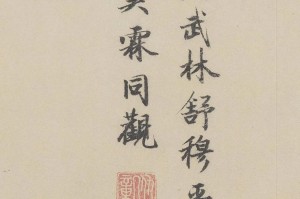 武林舒穆
吴霖同觀